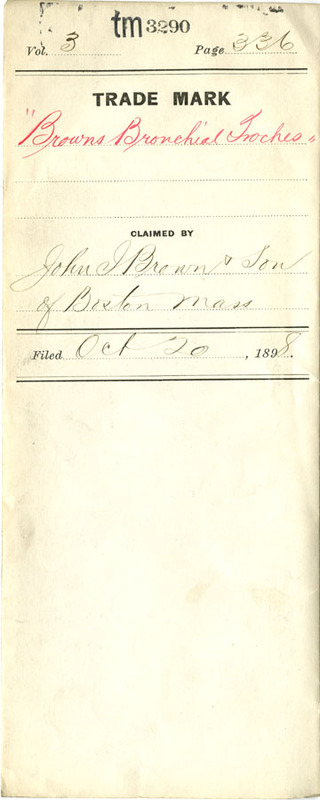 tm 3290
Vol. 3 Page 336
TRADE MARK
"Browns Bronchial Troches"
CLAIMED BY
John I Brown & Son
of Boston Mass
Filed Oct 20, 1898.